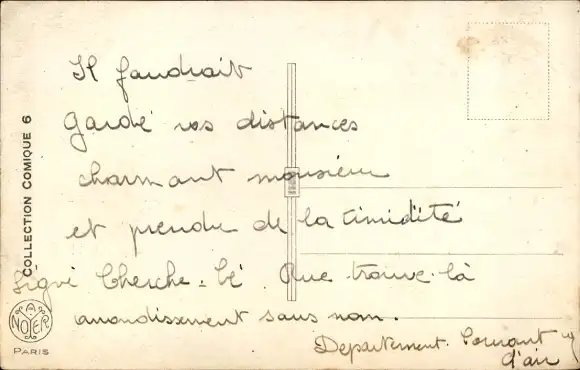 Il faudrait
Gardé vos distances
charmant monsieur
et prendre de la timidité
Signé Cherche-lé. Rue trouve-là
arrondissement sans nom.
Departement. Courant
d'air
COLLECTION COMIQUE 6
A NOYER
PARIS